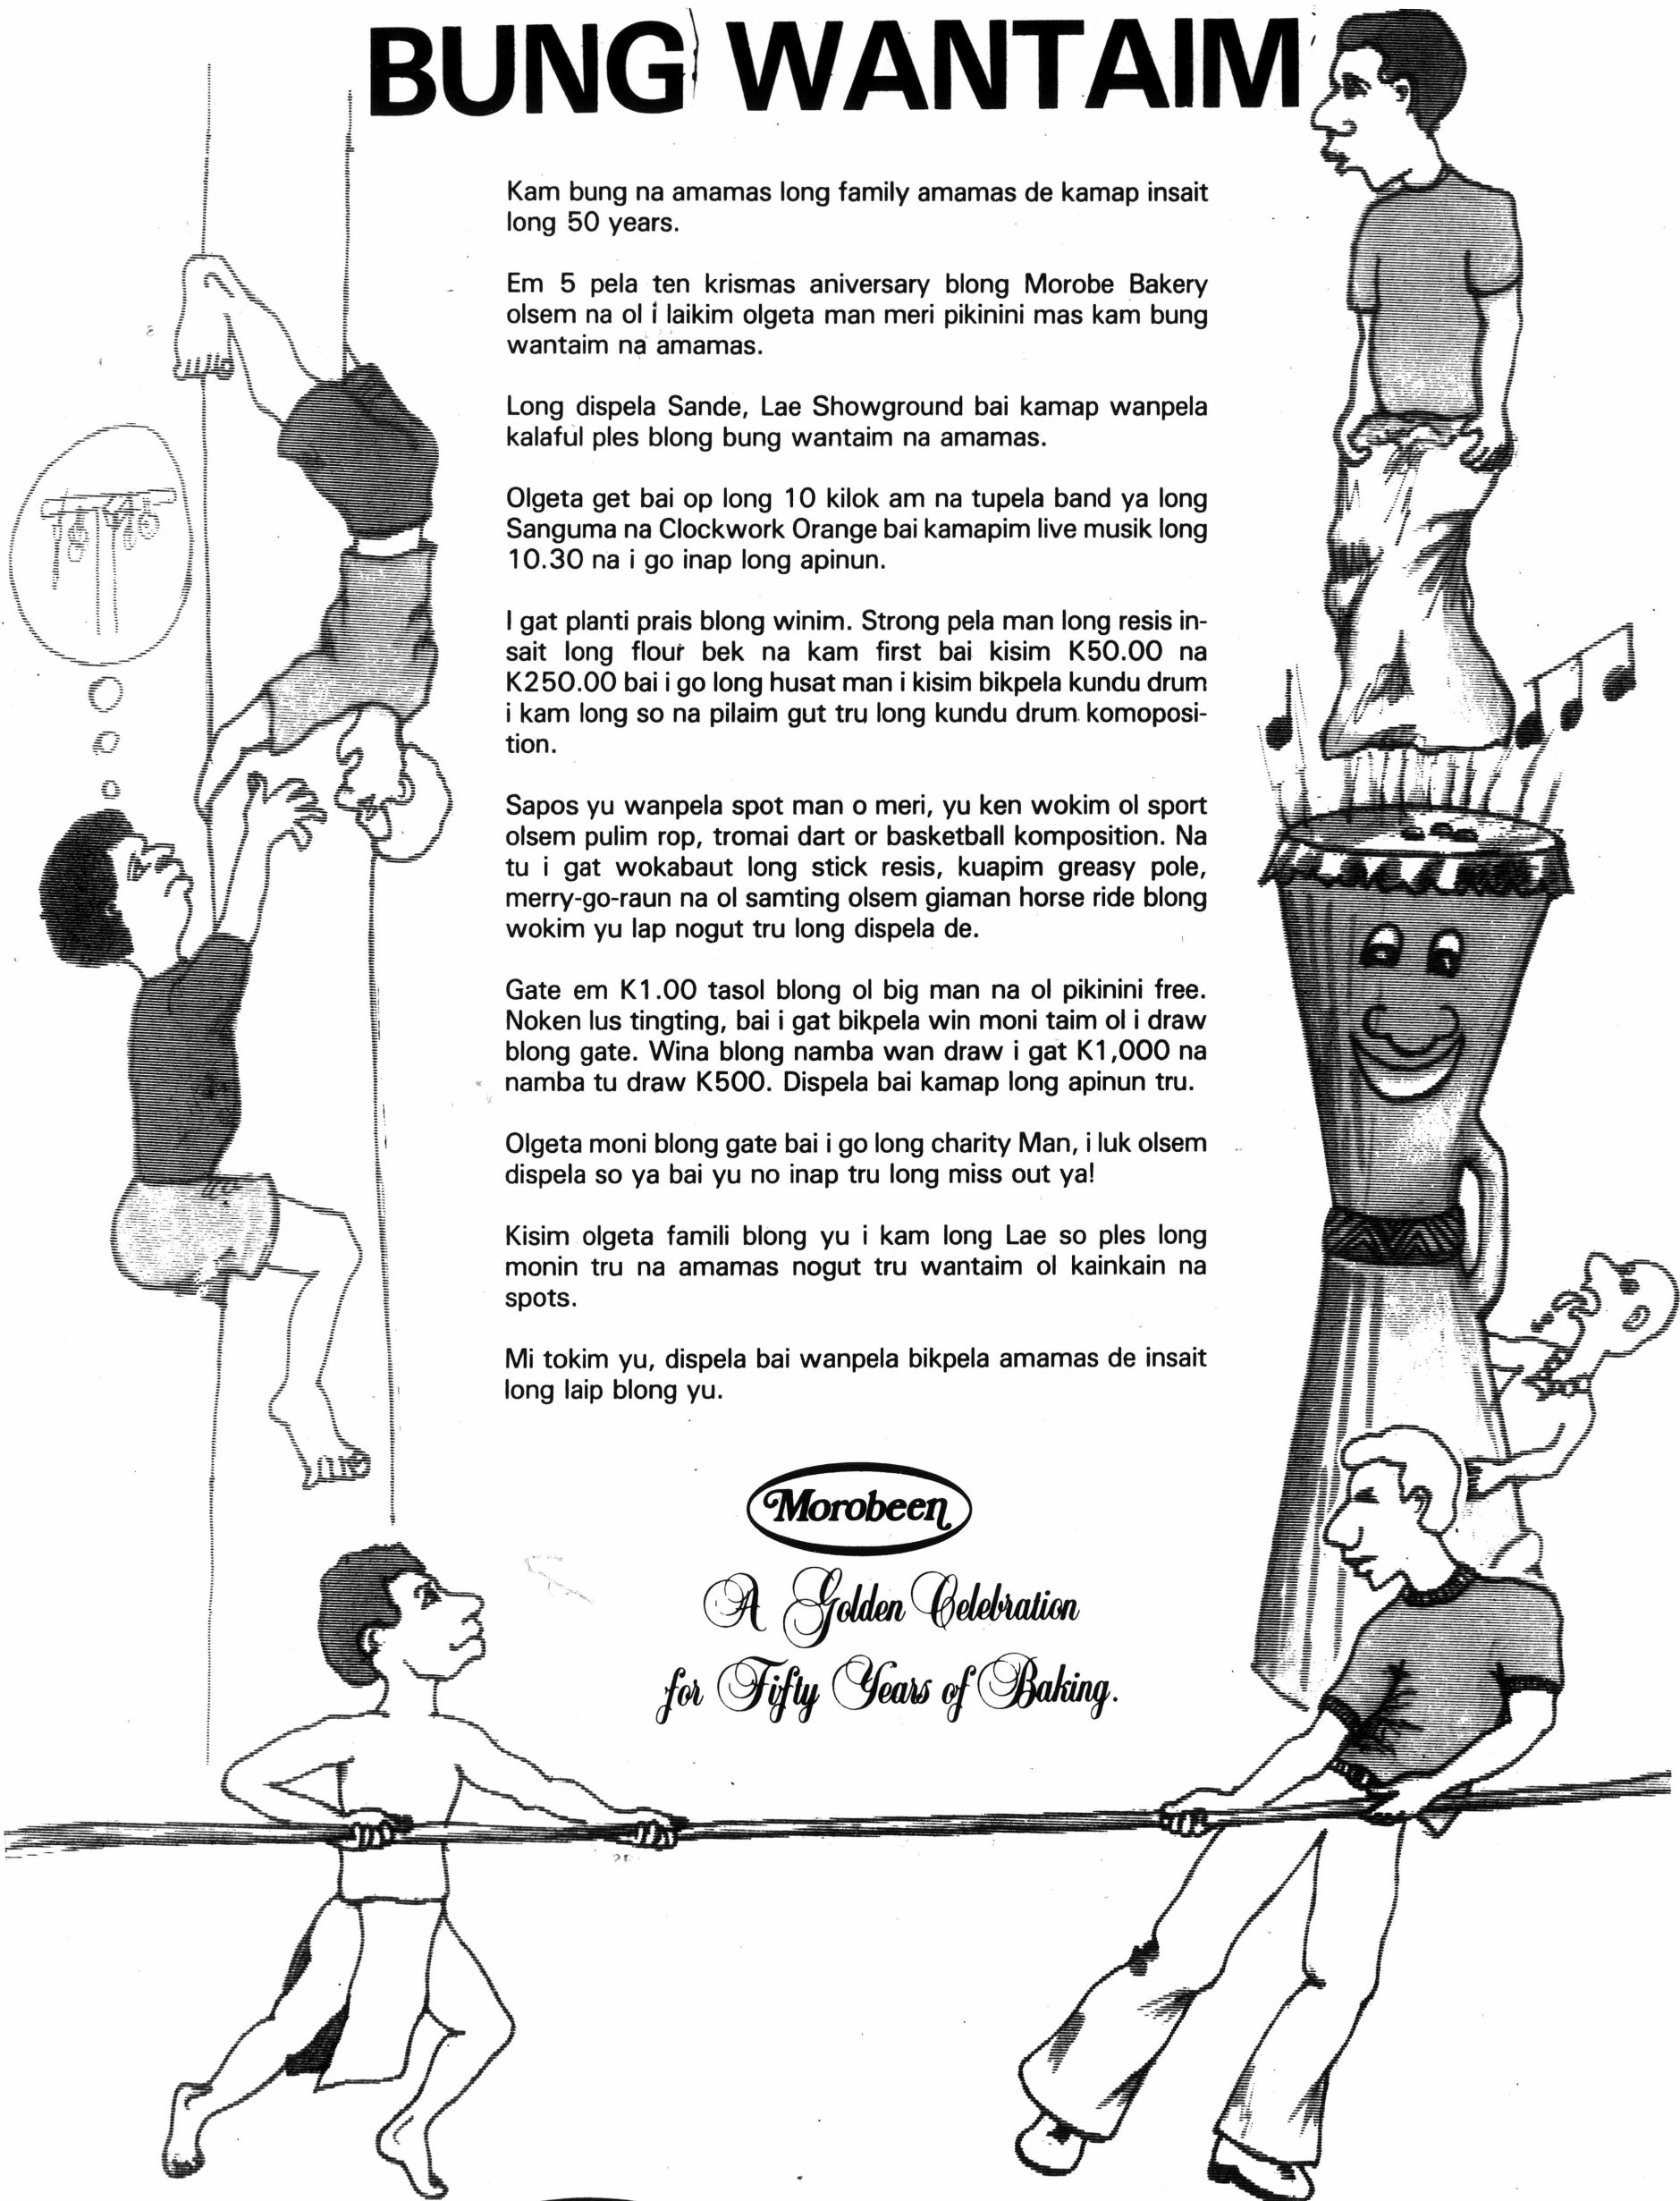 BUNG WANTAIM
Kam bung na amamas long family amamas de kamap insait
long 50 years.
Em 5 pela ten krismas aniversary blong Morobe Bakery
olsem na ol i laikim olgeta man meri pikinini mas kam bung
wantaim na amamas.
Long dispela Sande, Lae Showground bai kamap wanpela
kalaful ples blong bung wantaim na amamas.
Olgeta get bai op long 10 kilok am na tupela band ya long
Sanguma na Clockwork Orange bai kamapim live musik long
10.30 na i go inap long apinun.
I gat planti prais blong winim. Strong pela man long resis in-
sait long flour bek na kam first bai kisim K50.00 na
K250.00 bai i go long husat man i kisim bikpela kundu drum
i kam long so na pilaim gut tru long kundu drum komoposi-
tion.
Sapos yu wanpela spot man o meri, yu ken wokim ol sport
olsem pulim rop, tromai dart or basketball komposition. Na
tu i gat wokabaut long stick resis, kuapim greasy pole,
merry-go-raun na ol samting olsem giaman horse ride blong
wokim yu lap nogut tru long dispela de.
Gate em K1.00 tasol blong ol big man na ol pikinini free.
Noken lus tingting, bai i gat bikpela win moni taim ol i draw
blong gate. Wina blong namba wan draw i gat K1,000 na
namba tu draw K500. Dispela bai kamap long apinun tru.
Olgeta moni blong gate bai i go long charity Man, i luk olsem
dispela so ya bai yu no inap tru long miss out ya!
Kisim olgeta famili blong yu i kam long Lae so ples long
monin tru na amamas nogut tru wantaim ol kainkain na
spots.
Mi tokim yu, dispela bai wanpela bikpela amamas de insait
long laip blong yu.
Morobeen
A Golden Celebration
for Fifty Years of Baking.